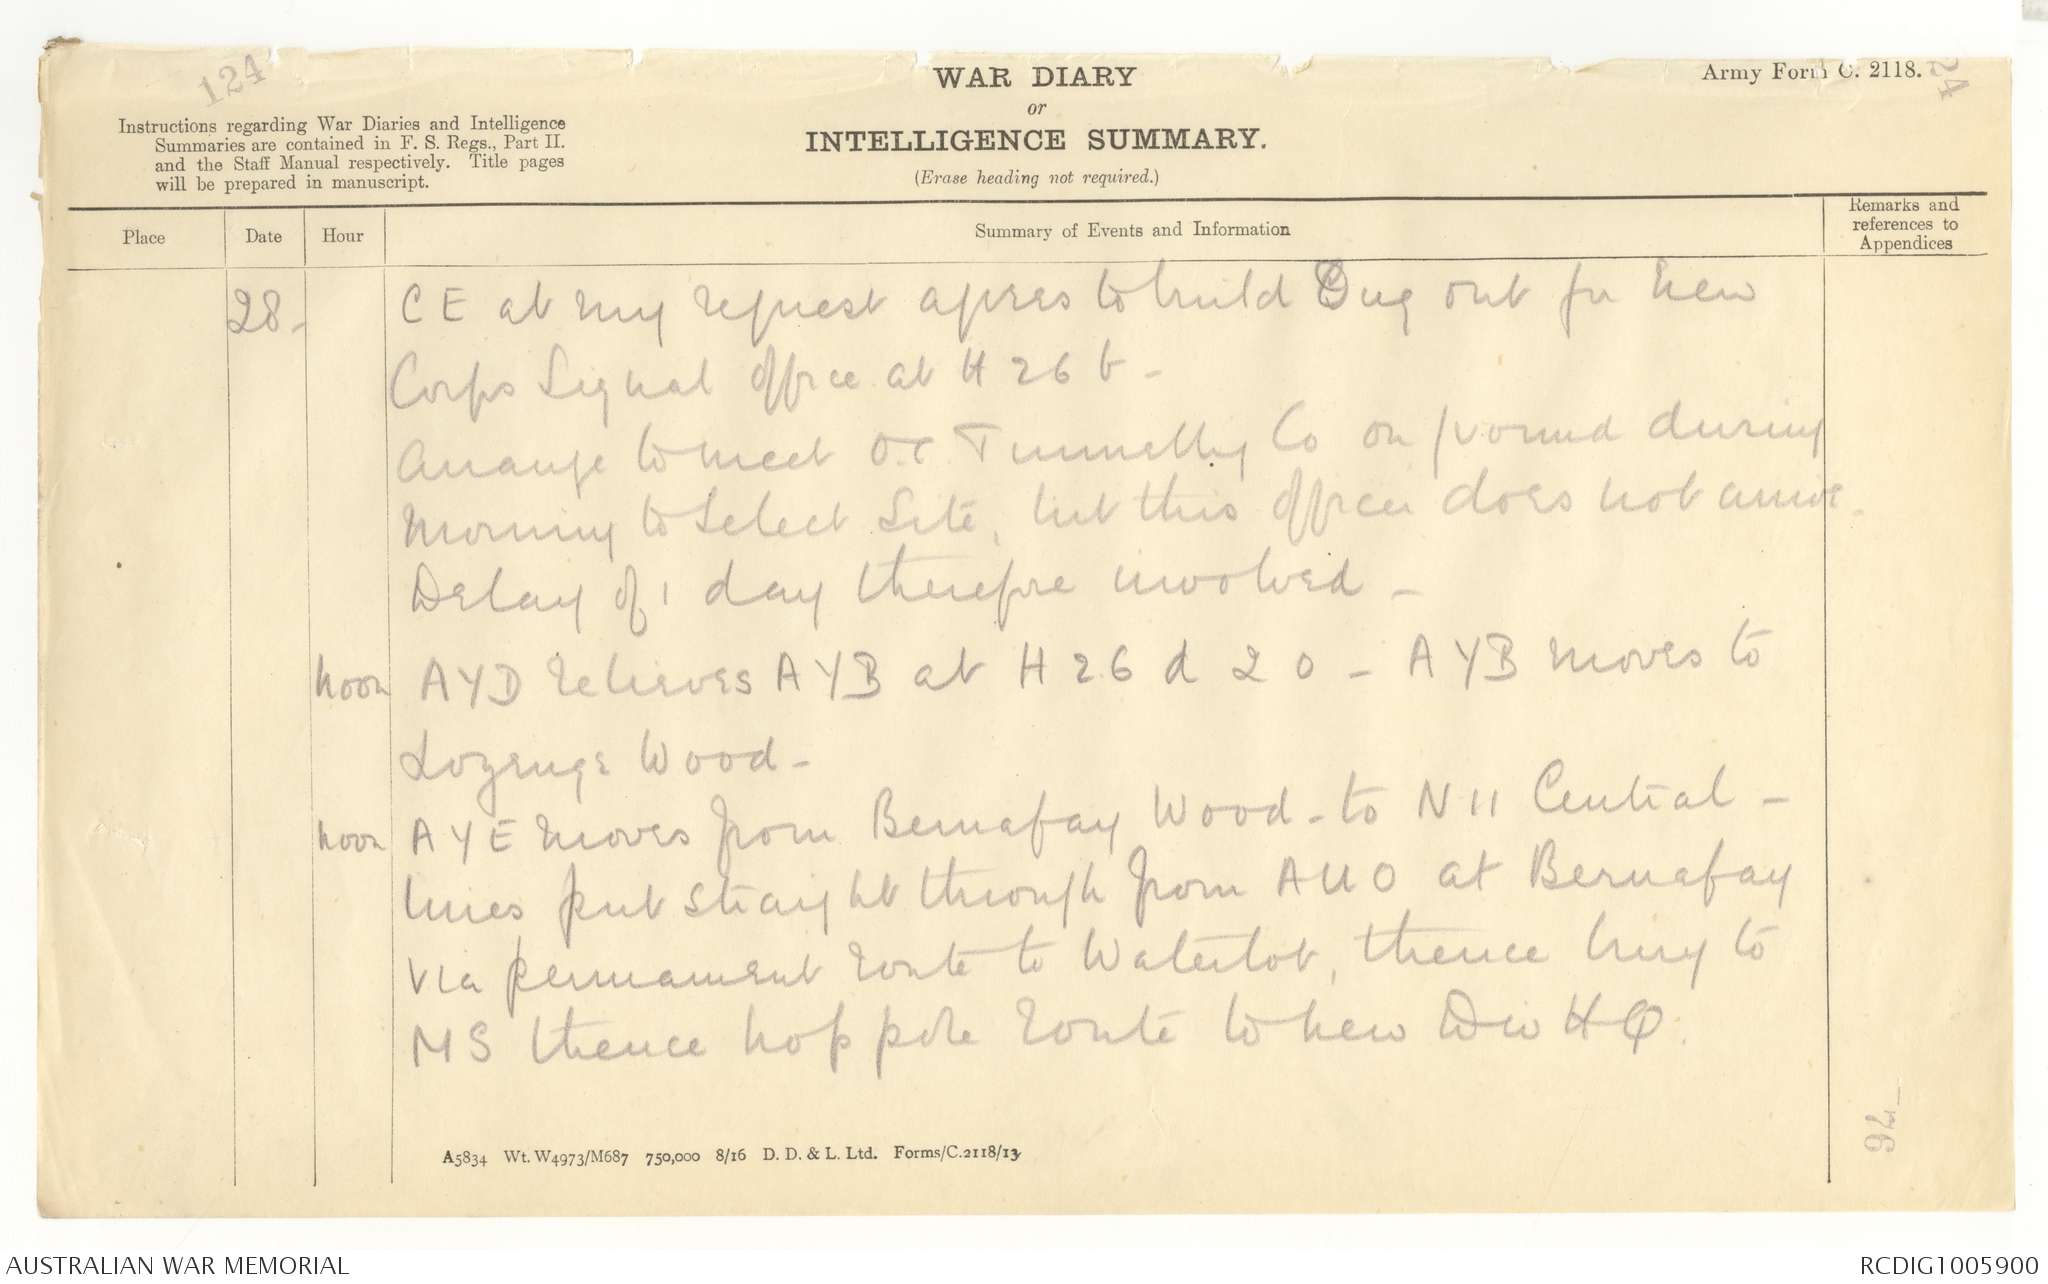 124
WAR DIARY
or
INTELLIGENCE SUMMARY.
(Erase heading not required.)
Army Form C. 2118.
24
Instructions regarding War Diaries and Intelligence
Summaries are contained in F. S. Regs., Part II.
and the Staff Manual respectively. Title pages
will be prepared in manuscript.
Place Date Hour Summary of Events and Information Remarks and
references to
Appendices
28. CE at my request agrees to build Dug out for new
Corps Signal Office at H 26 b -
Arrange to meet O.C. Tunnelling Co on ground during
morning to select site, but this officer does not arrive.
Delay of 1 day therefore involved -
noon AYD relieves AYB at H 26 d 2 0 - AYB moves to
Lozenge Wood -
noon AYE moves from Bernafay Wood - to N 11 Central -
lines put straight through from AUO at Bernafay
via permanent route to Waterlot, thence bury to
MS thence hop pole route to new Div HQ.
76
A5834 Wt. W4973/M687 750,000 8/16 D. D. & L. Ltd. Forms/C.2118/13
AUSTRALIAN WAR MEMORIAL
RCDIG1005900